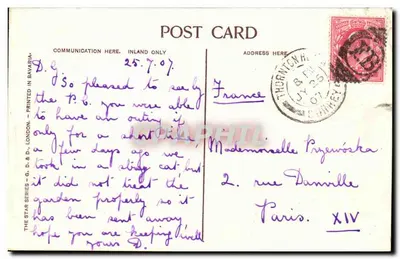 POST CARD
COMMUNICATION HERE. INLAND ONLY
ADDRESS HERE.
D. G. 25.7.07
So pleased to see by
the P.C. you were able
to have an outing if
only for a short time
a few days ago we
took in a stray cat but
it did not treat the
garden properly so it
has been sent away
hope you are keeping well
yours D.
France
Mademoiselle Przewóska
2. rue Danville
Paris. XIV
THORNTON H
JY 25
07
SURREY
THE STAR SERIES - G. D. & D., LONDON. - PRINTED IN BAVARIA.